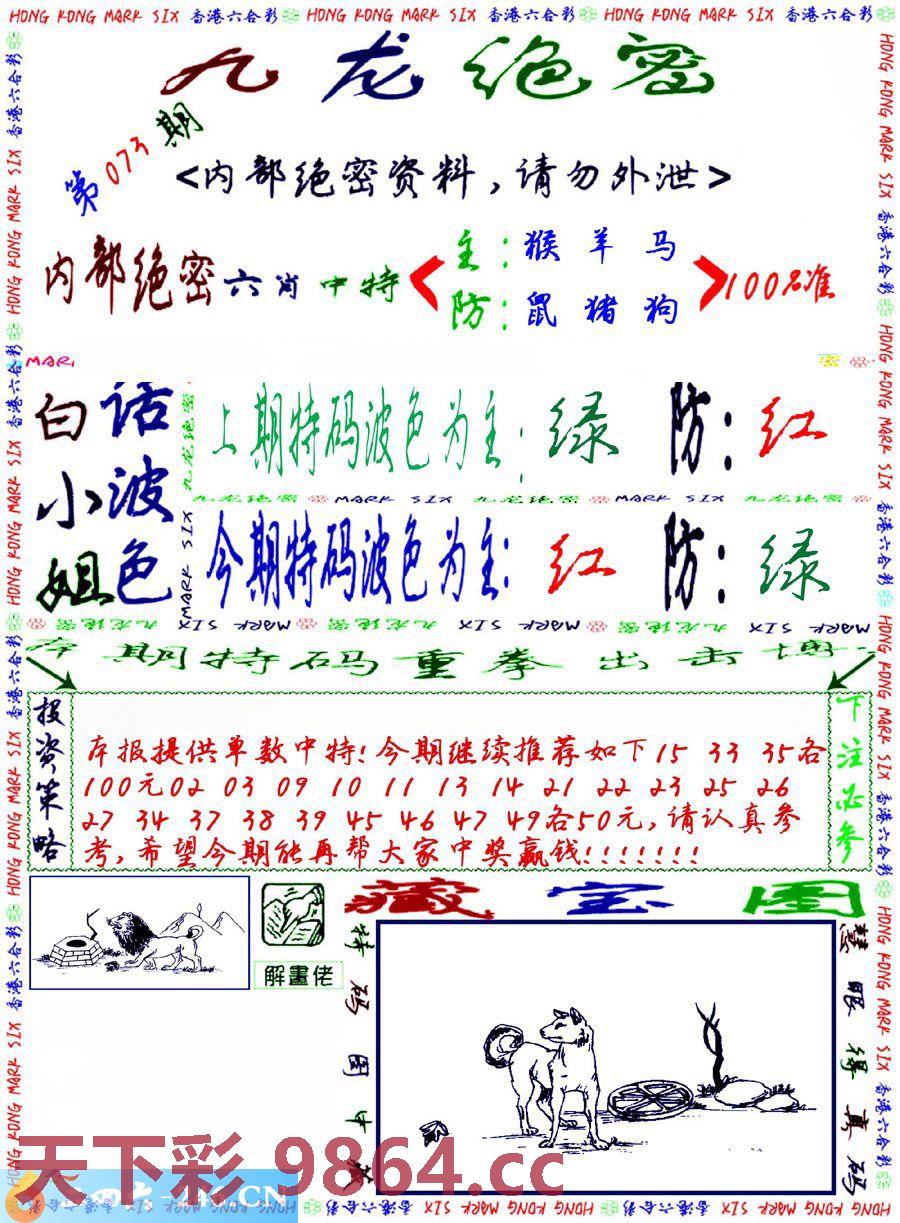 HONG KONG MARK SIX 香港六合彩 HONG KONG MARK SIX 香港六合彩 HONG KONG MARK SIX 香港六合彩
九龙绝密
第073期
<内部绝密资料,请勿外泄>
内部绝密六肖中特
主:猴羊马
防:鼠猪狗
100%准
MARK
白小姐
话波色
上期特码波色为主:绿 防:红
九龙绝密 MARK SIX 九龙绝密 MARK SIX 九龙绝密
今期特码波色为主:红 防:绿
MARK SIX 九龙绝密 MARK SIX 九龙绝密 SIX MARK 九龙绝密 SIX MARK
本期特码重拳出击
投资策略
本报提供单数中特!今期继续推荐如下15 33 35各
100元02 03 09 10 11 13 14 21 22 23 25 26
27 34 37 38 39 45 46 47 49各50元,请认真参
考,希望今期能再帮大家中奖赢钱!!!!!!!
下注必参
解畫佬
藏宝图
特码图中藏
慧眼得真码
天下彩 9864.cc
HONG KONG MARK SIX 香港六合彩